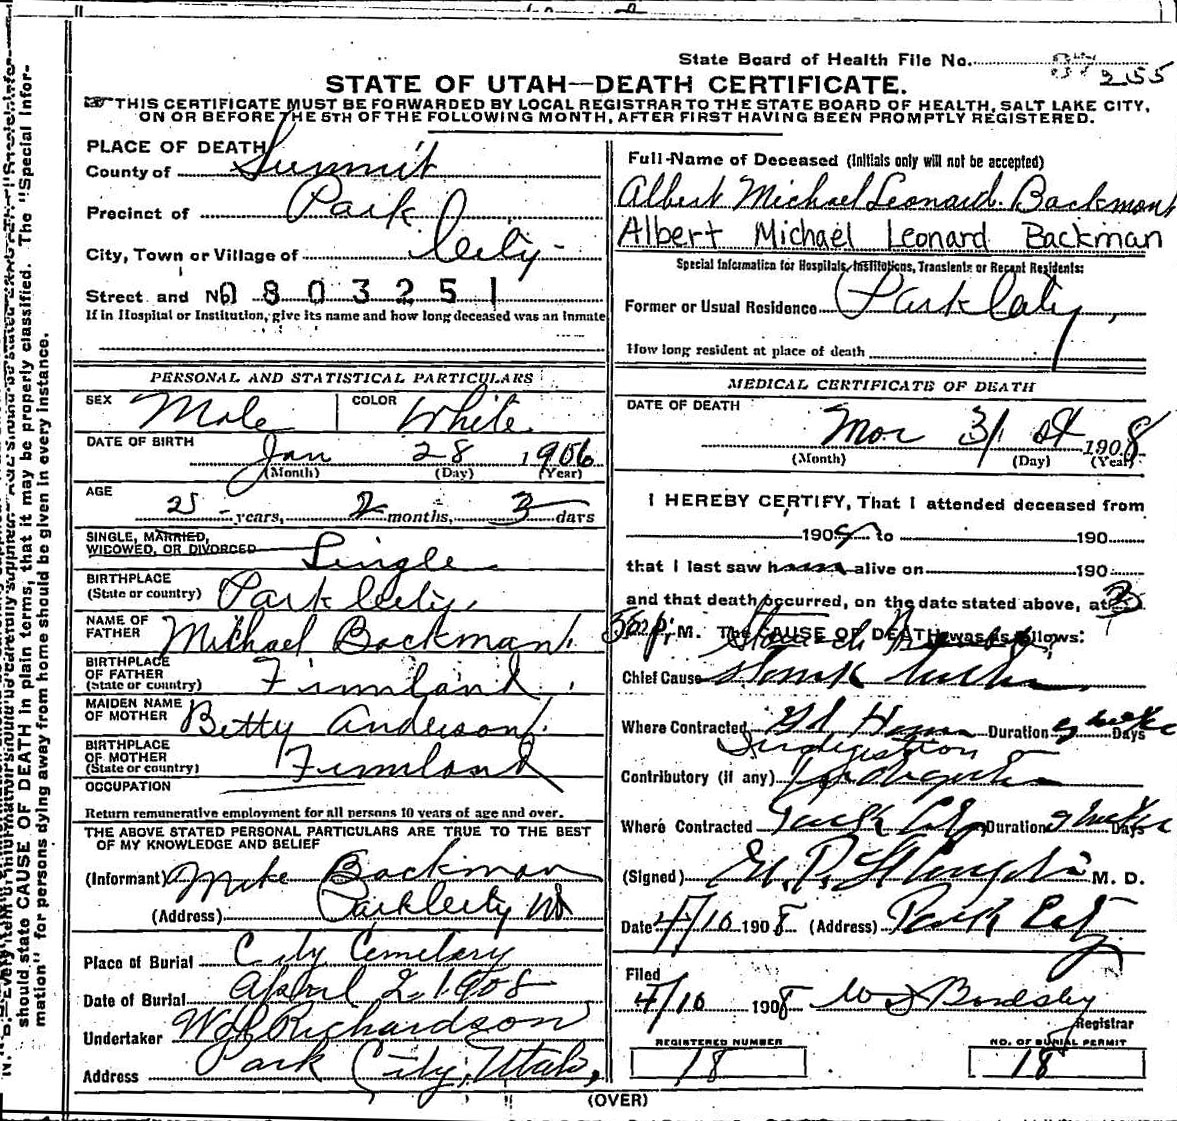 State Board of Health File No. 255
STATE OF UTAH—DEATH CERTIFICATE.
THIS CERTIFICATE MUST BE FORWARDED BY LOCAL REGISTRAR TO THE STATE BOARD OF HEALTH, SALT LAKE CITY,
ON OR BEFORE THE 5TH OF THE FOLLOWING MONTH, AFTER FIRST HAVING BEEN PROMPTLY REGISTERED.
PLACE OF DEATH
County of Summit
Precinct of Park
City, Town or Village of City
Street and No. 0 8 0 3 2 5 1
If in Hospital or Institution, give its name and how long deceased was an inmate
PERSONAL AND STATISTICAL PARTICULARS
SEX Male COLOR White
DATE OF BIRTH
Jan 28 1906
(Month) (Day) (Year)
AGE
2 years, 2 months, 3 days
SINGLE, MARRIED,
WIDOWED, OR DIVORCED Single
BIRTHPLACE
(State or country) Park City,
NAME OF
FATHER Michael Backman
BIRTHPLACE
OF FATHER
(State or country) Finnland
MAIDEN NAME
OF MOTHER Betty Anderson
BIRTHPLACE
OF MOTHER
(State or country) Finnland
OCCUPATION
Return remunerative employment for all persons 10 years of age and over.
THE ABOVE STATED PERSONAL PARTICULARS ARE TRUE TO THE BEST
OF MY KNOWLEDGE AND BELIEF
(Informant) Mike Backman
(Address) Park City Ut
Place of Burial City Cemetery
Date of Burial April 2, 1908
Undertaker W H Richardson
Address Park City, Utah,
Full-Name of Deceased (Initials only will not be accepted)
Albert Michael Leonard Backman
Albert Michael Leonard Backman
Special Information for Hospitals, Institutions, Transients or Recent Residents:
Former or Usual Residence Park City,
How long resident at place of death
MEDICAL CERTIFICATE OF DEATH
DATE OF DEATH
Mar 31st 1908
(Month) (Day) (Year)
I HEREBY CERTIFY, That I attended deceased from
190 to 190
that I last saw h alive on 190
and that death occurred, on the date stated above, at 3
M. The CAUSE OF DEATH was as follows:
Chief Cause
Where Contracted At Home Duration 9 weeks Days
Indigestion
Contributory (if any) Indigestion
Where Contracted Park City Duration 9 weeks Days
(Signed) M. D.
Date 4/10 1908 (Address) Park City
Filed
4/10 1908
Registrar
REGISTERED NUMBER
18
NO. OF BURIAL PERMIT
18
(OVER)
should state CAUSE OF DEATH in plain terms, that it may be properly classified. The "Special Infor-
mation" for persons dying away from home should be given in every instance.